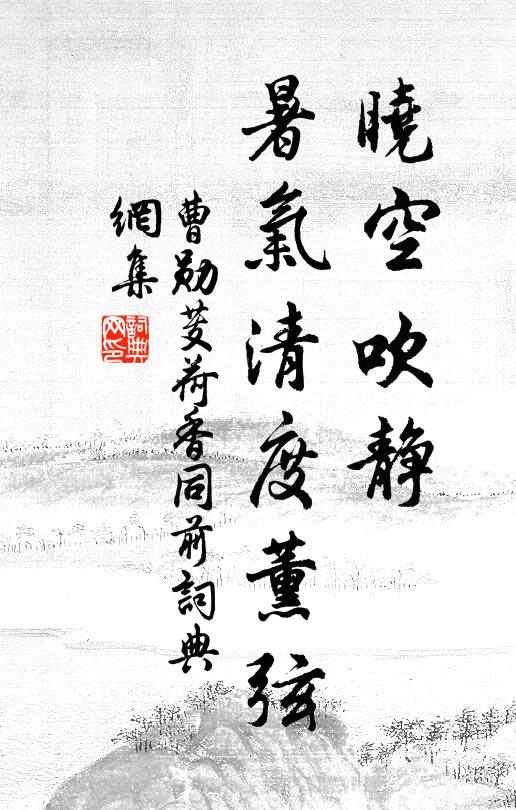 曉空吹静
暑氣清度薰弦
曹勛芰荷香同前詞典
網集
詞典
网印